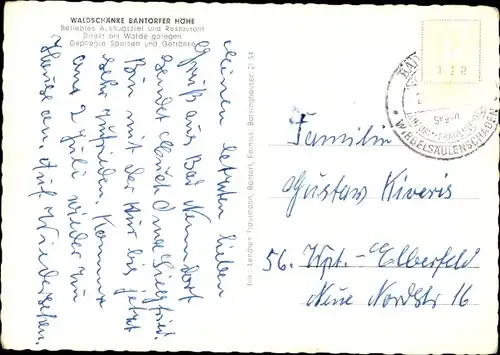 WALDSCHÄNKE BANTORFER HÖHE
Beliebtes Ausflugsziel und Restaurant
Direkt am Walde gelegen
Gepflegte Speisen und Getränke
Meinen letzten lieben
Gruß aus Bad Nenndorf
sendet Euch und Siegfried.
Bin mit der Kur bis jetzt
sehr zufrieden. Komme
am 2 Juli wieder zu
Hause an. Auf Wiedersehen.
Trautmann, Bantorf, Barsinghausen
BAD
WIRBELSÄULENSCHÄDEN
Familie
Gustav Kiveris
56. Wpt.-Elberfeld
Neue Nordstr 16